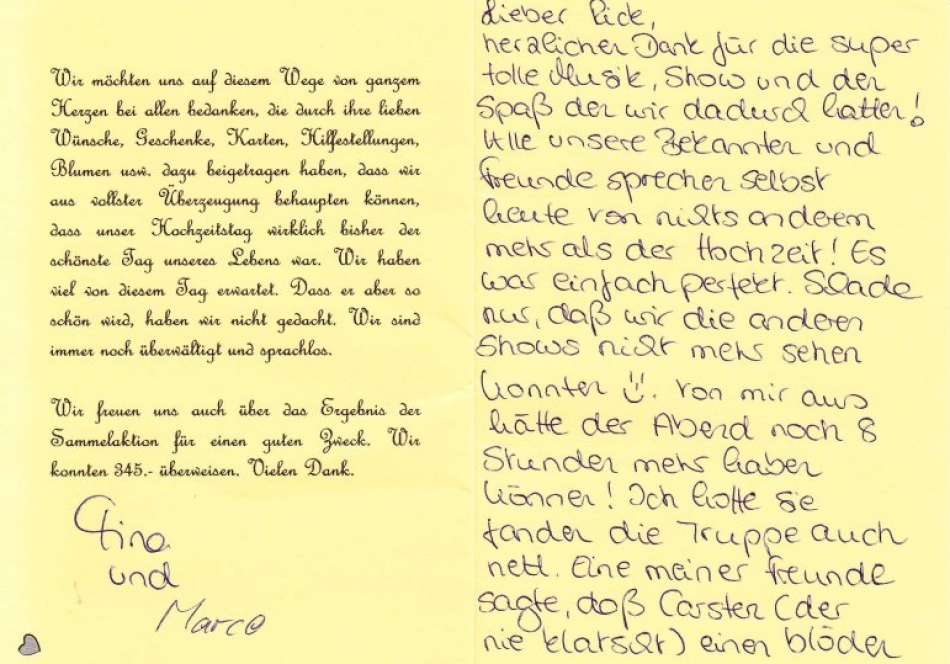 Wir möchten uns auf diesem Wege von ganzem
Herzen bei allen bedanken, die durch ihre lieben
Wünsche, Geschenke, Karten, Hilfestellungen,
Blumen usw. dazu beigetragen haben, dass wir
aus vollster Überzeugung behaupten können,
dass unser Hochzeitstag wirklich bisher der
schönste Tag unseres Lebens war. Wir haben
viel von diesem Tag erwartet. Dass er aber so
schön wird, haben wir nicht gedacht. Wir sind
immer noch überwältigt und sprachlos.
Wir freuen uns auch über das Ergebnis der
Sammelaktion für einen guten Zweck. Wir
konnten 345.- überweisen. Vielen Dank.
Tina
und
Marco
Lieber Rick,
herzlichen Dank für die super
tolle Musik, Show und den
Spaß den wir dadurch hatten!
Alle unsere Bekannten und
Freunde sprechen selbst
heute von nichts anderem
mehr als der Hochzeit! Es
war einfach perfekt. Schade
nur, daß wir die anderen
Shows nicht mehr sehen
konnten ☺. Von mir aus
hätte der Abend noch 8
Stunden mehr haben
können! Ich hoffe sie
fanden die Truppe auch
nett. Eine meiner Freunde
sagte, daß Carsten (der
nie klatscht) einen blöden